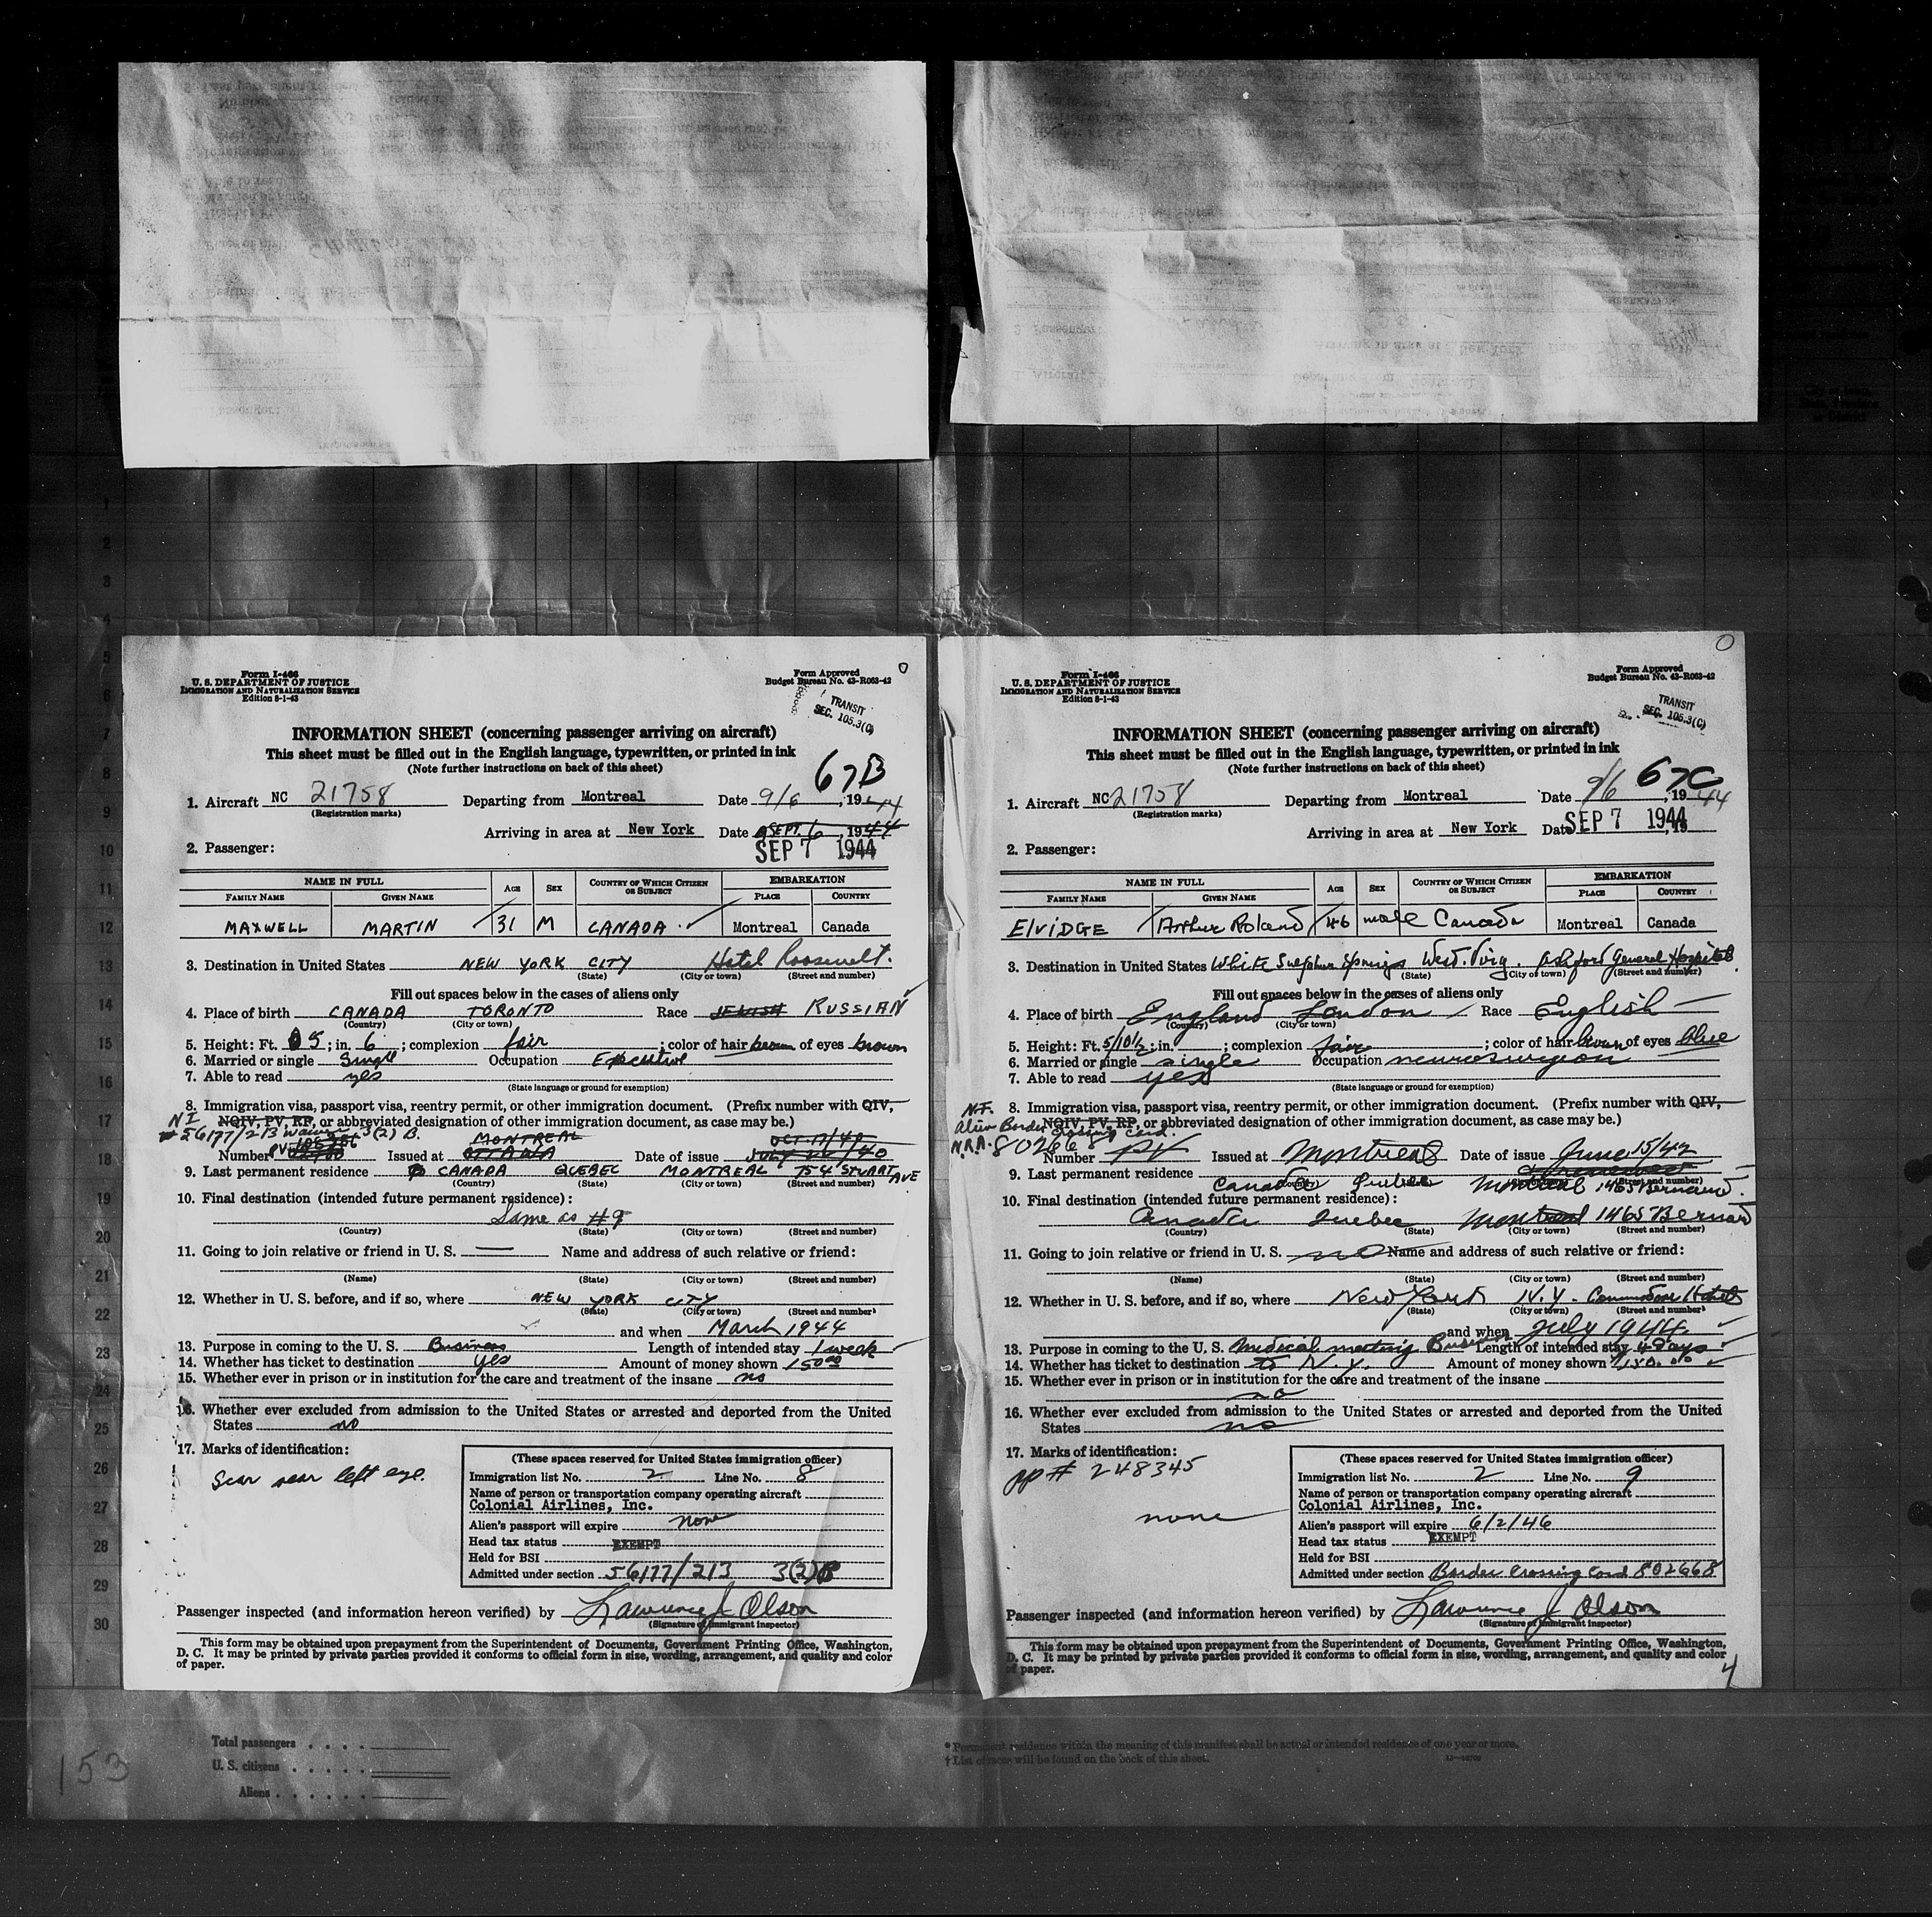 Form I-466
U. S. DEPARTMENT OF JUSTICE
IMMIGRATION AND NATURALIZATION SERVICE
Edition 8-1-43
Form Approved
Budget Bureau No. 43-R063-42
TRANSIT
SEC. 105.3(C)
INFORMATION SHEET (concerning passenger arriving on aircraft)
This sheet must be filled out in the English language, typewritten, or printed in ink
(Note further instructions on back of this sheet)
67B
1. Aircraft NC 21758 Departing from Montreal Date 9/6, 1944
(Registration marks)
Arriving in area at New York Date SEPT. 6, 1944
2. Passenger: SEP 7 1944
NAME IN FULL AGE SEX COUNTRY OF WHICH CITIZEN OR SUBJECT EMBARKATION
FAMILY NAME GIVEN NAME PLACE COUNTRY
MAXWELL MARTIN 31 M CANADA Montreal Canada
3. Destination in United States NEW YORK CITY Hotel Roosevelt.
(State) (City or town) (Street and number)
Fill out spaces below in the cases of aliens only
4. Place of birth CANADA TORONTO Race JEWISH RUSSIAN
(Country) (City or town)
5. Height: Ft. 5; in. 6; complexion fair; color of hair brown of eyes brown
6. Married or single Single Occupation Executive
7. Able to read yes
(State language or ground for exemption)
8. Immigration visa, passport visa, reentry permit, or other immigration document. (Prefix number with QIV,
NI NQIV, PV, RP, or abbreviated designation of other immigration document, as case may be.)
#56177/213 waiver 3(2) B. MONTREAL OCT. 17/40
Number PV Issued at OTTAWA Date of issue JULY 22/40
9. Last permanent residence CANADA QUEBEC MONTREAL 754 STUART AVE
(Country) (State) (City or town) (Street and number)
10. Final destination (intended future permanent residence):
Same as #9
(Country) (State) (City or town) (Street and number)
11. Going to join relative or friend in U. S. — Name and address of such relative or friend:
(Name) (State) (City or town) (Street and number)
12. Whether in U. S. before, and if so, where NEW YORK CITY
(State) (City or town) (Street and number)
and when March 1944
13. Purpose in coming to the U. S. Business Length of intended stay 1 week
14. Whether has ticket to destination yes Amount of money shown 150.00
15. Whether ever in prison or in institution for the care and treatment of the insane no
16. Whether ever excluded from admission to the United States or arrested and deported from the United
States no
17. Marks of identification:
Scar near left eye.
(These spaces reserved for United States immigration officer)
Immigration list No. 2 Line No. 8
Name of person or transportation company operating aircraft
Colonial Airlines, Inc.
Alien's passport will expire none
Head tax status EXEMPT
Held for BSI
Admitted under section 56177/213 3(2)B
Passenger inspected (and information hereon verified) by Lawrence J Olson
(Signature of immigrant inspector)
This form may be obtained upon prepayment from the Superintendent of Documents, Government Printing Office, Washington,
D. C. It may be printed by private parties provided it conforms to official form in size, wording, arrangement, and quality and color
of paper.
Form I-466
U. S. DEPARTMENT OF JUSTICE
IMMIGRATION AND NATURALIZATION SERVICE
Edition 8-1-43
Form Approved
Budget Bureau No. 43-R063-42
TRANSIT
SEC. 105.3(C)
INFORMATION SHEET (concerning passenger arriving on aircraft)
This sheet must be filled out in the English language, typewritten, or printed in ink
(Note further instructions on back of this sheet)
67C
1. Aircraft NC 21758 Departing from Montreal Date 9/6, 1944
(Registration marks)
Arriving in area at New York Date SEP 7 1944
2. Passenger:
NAME IN FULL AGE SEX COUNTRY OF WHICH CITIZEN OR SUBJECT EMBARKATION
FAMILY NAME GIVEN NAME PLACE COUNTRY
ElViDGE Arthur Roland 46 male Canada Montreal Canada
3. Destination in United States White Sulphur Springs West. Virg. Ashford General Hospital
(State) (City or town) (Street and number)
Fill out spaces below in the cases of aliens only
4. Place of birth England London Race English
(Country) (City or town)
5. Height: Ft. 5/10½; in.; complexion fair; color of hair brown of eyes blue
6. Married or single single Occupation neurosurgeon
7. Able to read yes
(State language or ground for exemption)
8. Immigration visa, passport visa, reentry permit, or other immigration document. (Prefix number with QIV,
NQIV, PV, RP, or abbreviated designation of other immigration document, as case may be.)
Alien Border Crossing Card.
802668
Number Issued at Montreal Date of issue June 15/42
9. Last permanent residence Canada Quebec Montreal 1465 Bernard.
(Country) (Street and number)
10. Final destination (intended future permanent residence):
Canada Quebec Montreal 1465 Bernard
(Country) (State) (City or town) (Street and number)
11. Going to join relative or friend in U. S. no Name and address of such relative or friend:
(Name) (State) (City or town) (Street and number)
12. Whether in U. S. before, and if so, where New York N.Y. Commodore Hotel
(State) (City or town) (Street and number)
and when July 1944.
13. Purpose in coming to the U. S. Medical meeting Business Length of intended stay 4 days
14. Whether has ticket to destination to N.Y. Amount of money shown $150.00
15. Whether ever in prison or in institution for the care and treatment of the insane
no
16. Whether ever excluded from admission to the United States or arrested and deported from the United
States no
17. Marks of identification:
pp# 248345
none
(These spaces reserved for United States immigration officer)
Immigration list No. 2 Line No. 9
Name of person or transportation company operating aircraft
Colonial Airlines, Inc.
Alien's passport will expire 6/2/46
Head tax status EXEMPT
Held for BSI
Admitted under section Border Crossing Card 802668
Passenger inspected (and information hereon verified) by Lawrence J Olson
(Signature of immigrant inspector)
This form may be obtained upon prepayment from the Superintendent of Documents, Government Printing Office, Washington,
D. C. It may be printed by private parties provided it conforms to official form in size, wording, arrangement, and quality and color
of paper.
4
1
2
3
4
5
6
7
8
9
10
11
12
13
14
15
16
17
18
19
20
21
22
23
24
25
26
27
28
29
30
153
Total passengers
U. S. citizens
Aliens
* Permanent residence within the meaning of this manifest shall be actual or intended residence of one year or more.
† List of races will be found on the back of this sheet.